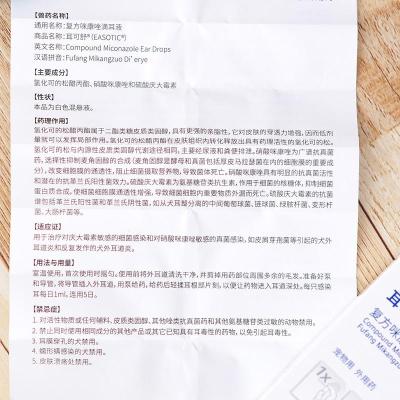 【兽药名称】
通用名称：复方咪康唑滴耳液
商品名称：耳可舒® (EASOTIC®)
英文名称：Compound Miconazole Ear Drops
汉语拼音：Fufang Mikangzuo Di' erye
【主要成分】
氢化可的松醋丙酯、硝酸咪康唑和硫酸庆大霉素
【性状】
本品为白色混悬液。
【药理作用】
氢化可的松醋丙酯属于二酯类糖皮质类固醇，具有更强的亲脂性。它对皮肤的穿透力增强，因而低剂
量就可以发挥局部作用。氢化可的松醋丙酯在皮肤组织内转化释放出具有药理活性的氢化可的松。氢
化可的松与内源性皮质类固醇代谢途径相同，主要经尿液和粪便排泄。硝酸咪康唑为广谱抗真菌
药，选择性抑制麦角固醇的合成（麦角固醇是酵母和真菌包括厚皮马拉瑟菌在内的细胞膜的重要成
分），改变细胞膜的通透性，阻止细菌摄取营养物，导致菌体死亡。硝酸咪康唑具有明显的抗真菌活性
和潜在的抗革兰氏阳性菌效力。硫酸庆大霉素为氨基糖苷类抗生素，作用于细菌的核糖体，抑制细菌
蛋白质合成，使细菌细胞膜通透性增强，导致细菌胞内重要物质外漏而死亡。硫酸庆大霉素的抗菌
谱包括革兰氏阳性菌和革兰氏阴性菌，如从犬耳部分离的中间葡萄球菌、链球菌、绿脓杆菌、变形杆
菌、大肠杆菌等。
【适应证】
用于治疗对庆大霉素敏感的细菌感染和对硝酸咪康唑敏感的真菌感染，如皮屑芽孢菌等引起的犬外
耳道炎和反复发作的犬外耳道炎。
【用法与用量】
室温使用，首次使用时摇匀。使用前将外耳道清洗干净，并剪掉用药部位周围多余的毛发。准备好泵
和导管，将导管插入外耳道，用泵给药，给药后轻揉耳根部片刻，以便让药物进入耳道深处。每只感染
耳每日1ml，连用5日。
【禁忌症】
1. 对活性物质或任何辅料、皮质类固醇、其他唑类抗真菌药和其他氨基糖苷类过敏的动物禁用。
2. 禁止同时使用相同成分的其他产品或其它已知具有耳毒性的药物，以免引起耳毒性。
3. 耳膜穿孔的犬禁用。
4. 蠕形螨感染的犬禁用。
5. 皮肤溃疡处禁用。
耳
复方咪
Compound Micona
Fufang Mikangzu
宠物用 外用药
1X